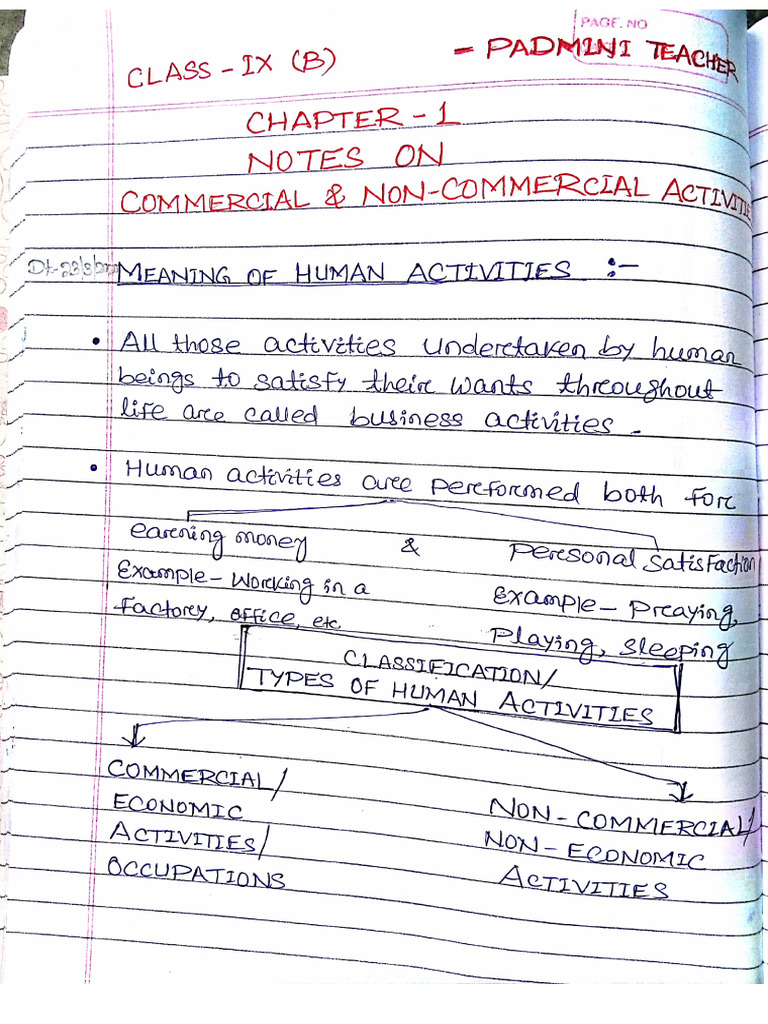 PAGE. NO
CLASS - IX (B) - PADMINI TEACHER
CHAPTER - 1
NOTES ON
COMMERCIAL & NON-COMMERCIAL ACTIVITIE
MEANING OF HUMAN ACTIVITIES :-
• All those activities undertaken by human
beings to satisfy their wants throughout
life are called business activities.
• Human activities are performed both for
earning money & Personal satisfaction
Example - Working in a Example - Praying,
Factory, office, etc. Playing, sleeping
CLASSIFICATION/
TYPES OF HUMAN ACTIVITIES
COMMERCIAL/
ECONOMIC
ACTIVITIES/
OCCUPATIONS
NON-COMMERCIAL/
NON-ECONOMIC
ACTIVITIES